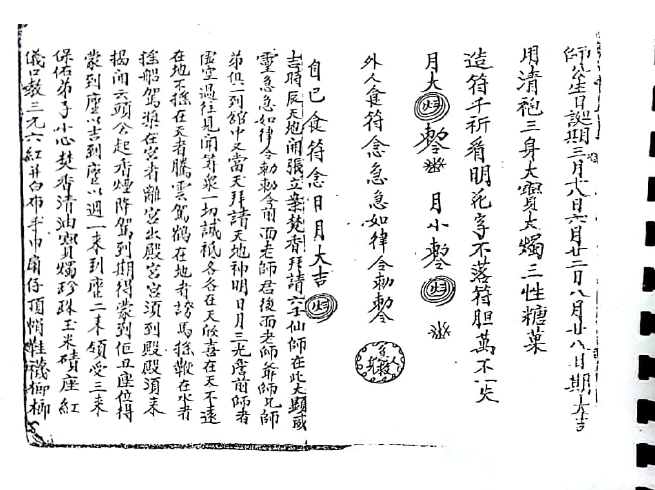 師公生日誕期三月十八日六月廿二日八月廿八日期大吉
用清袍三身大寶大燭三性糖菓
造符千祈看明花字不落符胆萬不一失
月大 月小
外人食符念急急如律令勅勅令
自己食符念日月大吉
吉時 天地開張立案焚香拜請六壬仙師在此大顯威
靈急急如律令勅勅令 前面老師君後面老師爺師兄師
弟俱一到館中又當天拜請天地神明日月三光 前師者
虛空過往見聞 眾一切誠祇各各在天 喜在天不遠
在地不 在天者騰雲駕鶴在地者 馬 鞭在水者
搖船駕槳在宮者離宮出殿宮宮須到殿殿須來
揭開 頭分起香煙降駕到期得蒙到 且座位得
蒙到座以吉到座以週一來到座二來領受三來
保佑弟子小心焚香清油寶燭珍珠玉米 座紅
儀口 三元六紅 白布手巾扇仔頂帽鞋襪